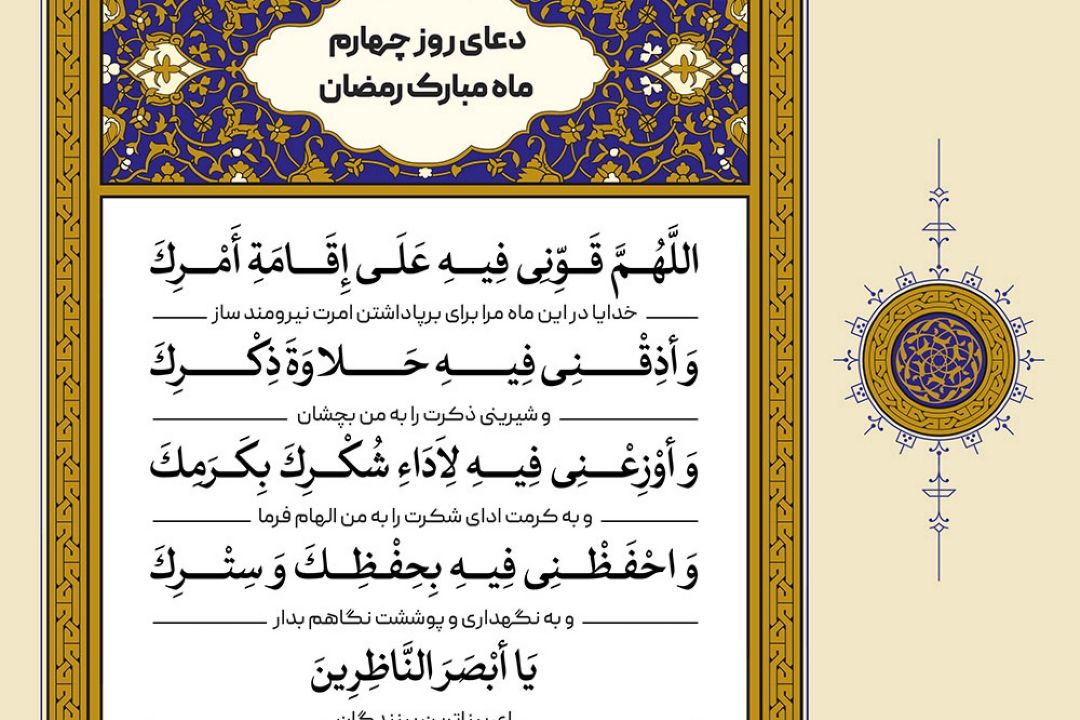 دعای روز چهارم
ماه مبارک رمضان
اللَّهُمَّ قَوِّنِی فِیهِ عَلَى إِقَامَةِ أَمْرِكَ
خدایا در این ماه مرا برای برپاداشتن امرت نیرومند ساز
وَ أَذِقْنِی فِیهِ حَلاوَةَ ذِكْرِكَ
و شیرینی ذکرت را به من بچشان
وَ أَوْزِعْنِی فِیهِ لِأَدَاءِ شُكْرِكَ بِكَرَمِكَ
و به کرمت ادای شکرت را به من الهام فرما
وَ احْفَظْنِی فِیهِ بِحِفْظِكَ وَ سِتْرِكَ
و به نگهداری و پوششت نگاهم بدار
یَا أَبْصَرَ النَّاظِرِینَ
ای بیناترین بینندگان